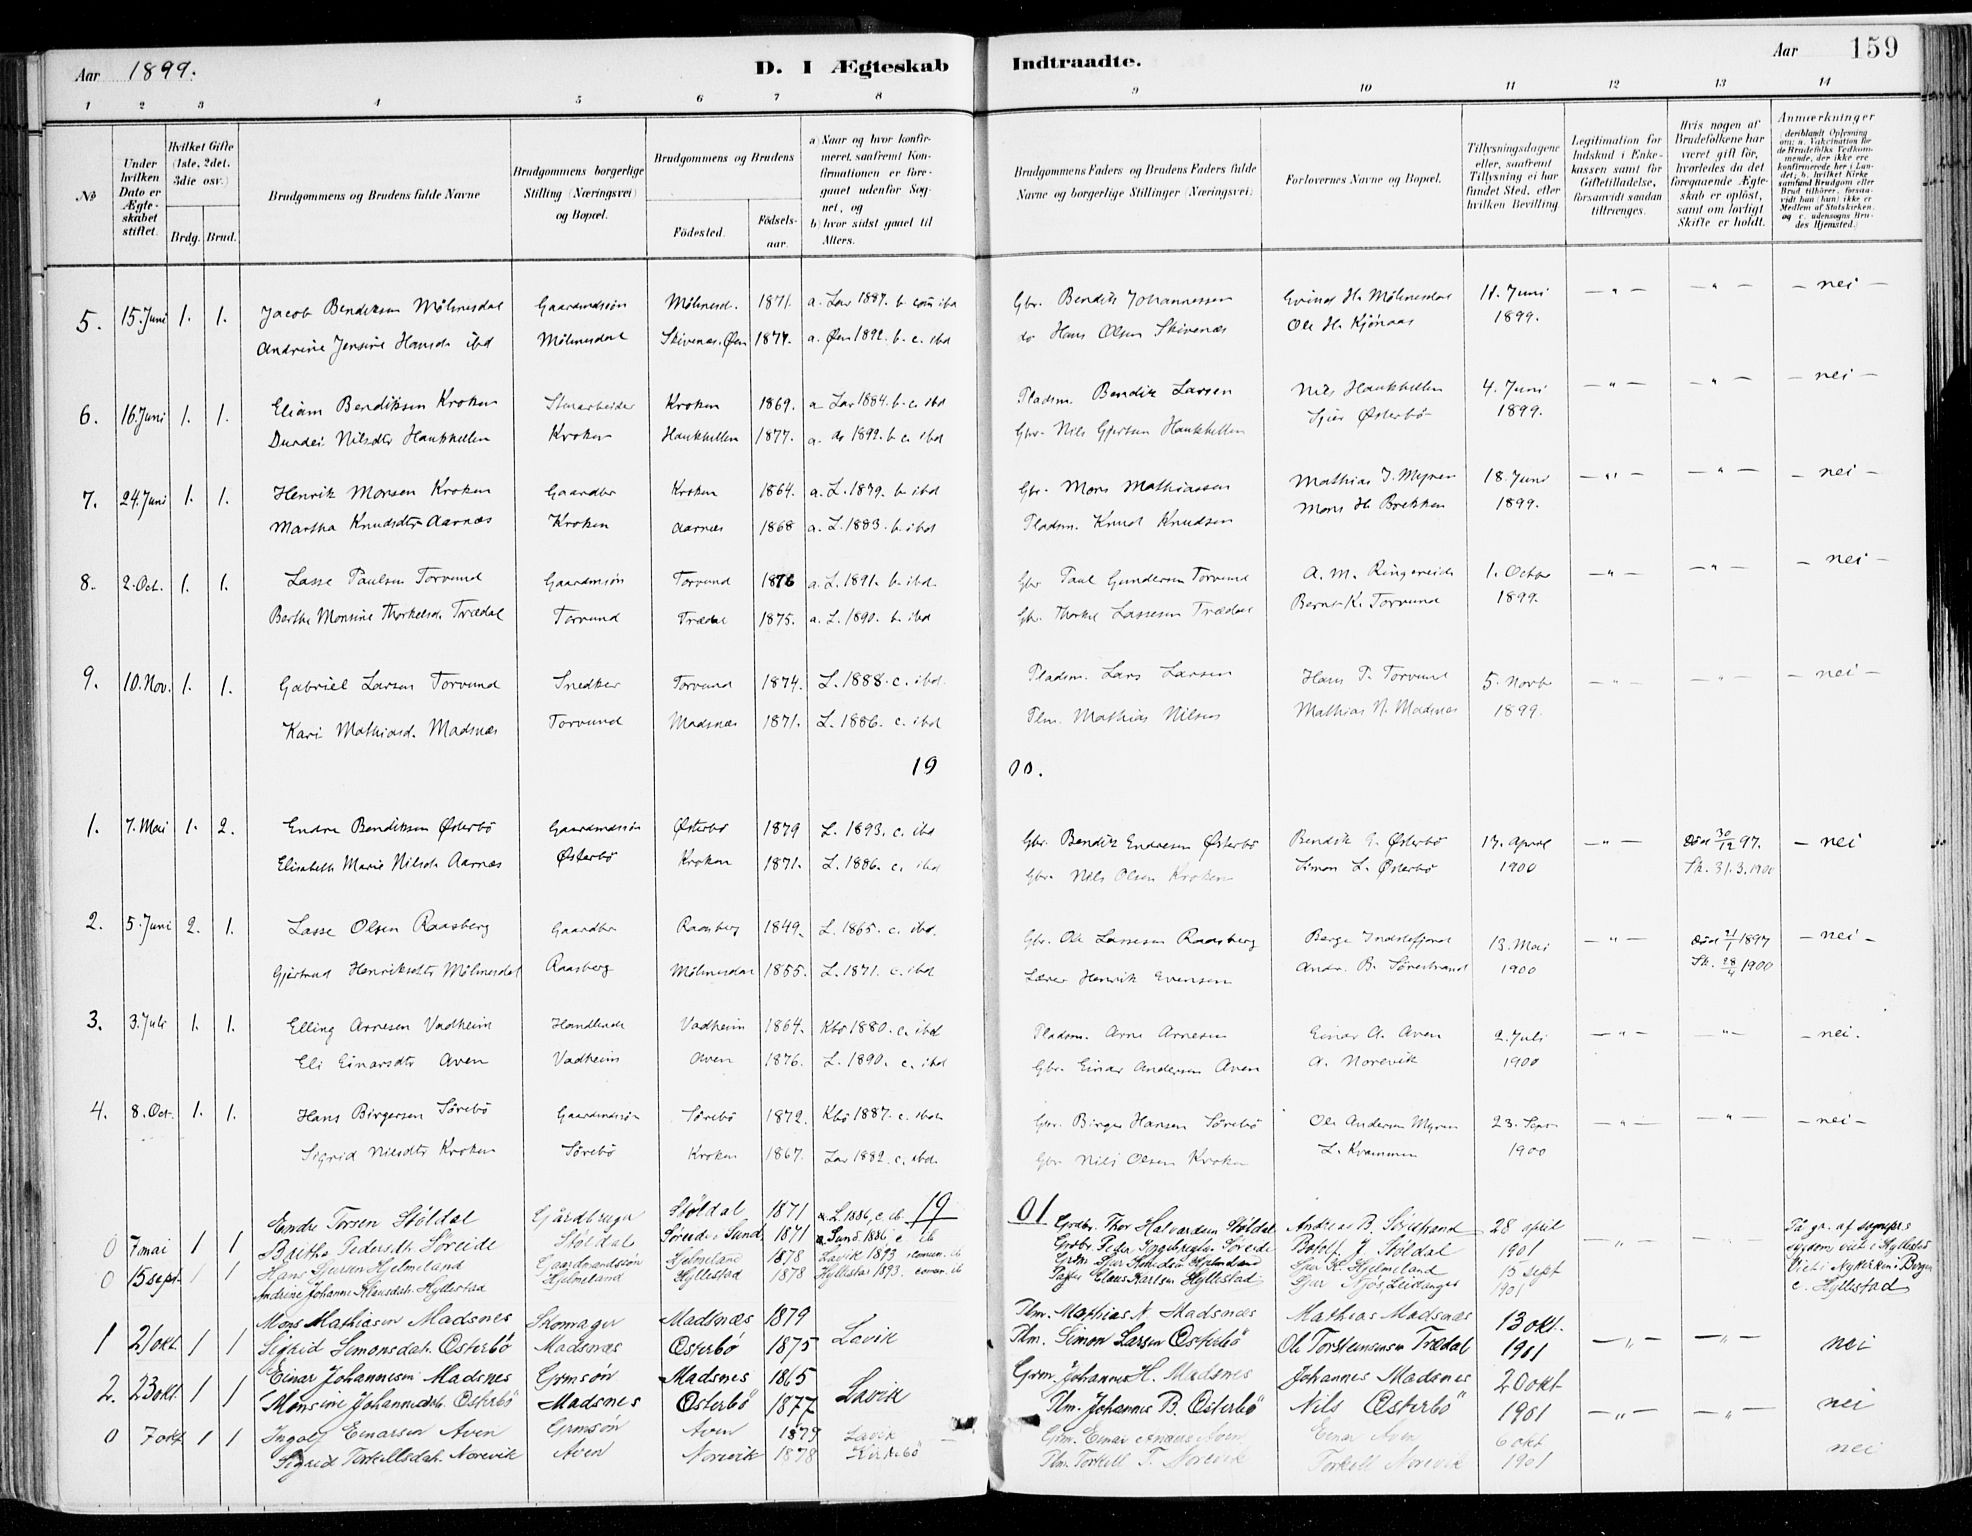 Aar 1899.
D. I Ægteskab Indtraadte.
Aar 159
1 2 3 4 5 6 7 8 9 10 11 12 13 14
No
Under hvilken Dato er Ægteskabet stiftet.
Hvilket Gifte (1ste, 2det, 3die osv.)
Brdg. Brud.
Brudgommens og Brudens fulde Navne
Brudgommens borgerlige Stilling (Næringsvei) og Bopæl.
Brudgommens og Brudens
Fødested. Fødselsaar.
a) Naar og hvor konfirmeret, saafremt Konfirmationen er foregaaet udenfor Sognet, og
b) hvor sidst gaaet til Alters.
Brudgommens Faders og Brudens Faders fulde Navne og borgerlige Stillinger (Næringsvei)
Forlovernes Navne og Bopæl.
Tillysningsdagene eller, saafremt Tillysning ei har fundet Sted, efter hvilken Bevilling
Legitimation for Indskud i Enkekassen samt for Giftetilladelse, forsaavidt saadan tiltrænges.
Hvis nogen af Brudefolkene har været gift før, hvorledes da det foregaaende Ægteskab er opløst, samt om lovligt Skifte er holdt.
Anmærkninger (deriblandt Oplysning om: a. Vakcination for de Brudefolks Vedkommende, der ikke ere konfirmerede her i Landet; b. hvilket Kirkesamfund Brudgom eller Brud tilhører, forsaavidt han (hun) ikke er Medlem af Statskirken, og c. udensogns Brudes Hjemsted.)
5. 15. Juni 1. 1. Jacob Bendiksen Mölmesdal Gaardmdssön Mölmesd. 1871. a. Lav 1887. b. com ibd Gbr. Bendik Johannessen Evind H. Mölmesdal 11. Juni — " — — " — — nei —
Andrine Jensine Hansdr ibd Mölmesdal Skivenes, Øen 1877. a. Øen 1892. b. c. ibd do Hans Olsen Skivenæs Ole H. Kjönaas 1899.
6. 16. Juni 1. 1. Eliam Bendiksen Kroken Stenarbeider Kroken 1869. a. Lav 1884. b. c. ibd Pladsm. Bendik Larsen Nils Haukhellen 4. Juni — " — — " — — nei —
Durdei Nilsdtr Haukhellen Kroken Haukhellen 1877. a. do 1892. b. c. ibd Gbr. Nils Gjertsen Haukhellen Sjur Østerbö 1899.
7. 24. Juni 1. 1. Henrik Monsen Kroken Gaardbr Kroken 1864. a. L. 1879. b. ibd Gbr. Mons Mathiassen Mathias J. Myren 18. Juni — " — — " — — nei —
Martha Knudsdtr Aarnæs Kroken Aarnæs 1868 a. L. 1883. b. ibd Pladsm. Knud Knudsen Mons H. Brekken 1899.
8. 2. Oct. 1. 1. Lasse Paulsen Torvund Gaardmsön Torvund 1876 a. L. 1891. b. ibd. Gbr Paul Gundersen Torvund A. M. Ringereide 1. Octbr — " — — " — — nei —
Berthe Monsine Thorkelsd. Trædal Torvund Trædal 1875. a. L. 1890. b. ibd Gbr. Thorkel Lassesen Trædal Bernt K. Torvund 1899.
9. 10. Nov. 1. 1. Gabriel Larsen Torvund Snedker Torvund 1874. L. 1888. c. ibd. Pladsm. Lars Larsen Hans P. Torvund 5. Novbr — " — — " — — nei —
Kari Mathiasd. Madsnæs Torvund Madsnæs 1871. L. 1886. c. ibd Plm. Mathias Nilsen Mathias N. Madsnæs 1899.
19 00.
1. 7. Mai 1. 2. Endre Bendiksen Østerbö Gaardmdssön Østerbö 1879 L. 1893. c. ibd Gbr. Bendik Endresen Østerbö Bendik E. Østerbö 17. April — " — Död 30/12 97. — nei
Elisabeth Marie Nilsdr Aarnæs Østerbö Kroken 1871. L. 1886. c. ibd Gbr. Nils Olsen Kroken Simon L. Østerbö 1900 Sk. 31.3.1900
2. 5. Juni 2. 1. Lasse Olsen Raasberg Gaardbr Raasberg 1849. L. 1865. c. ibd. Gbr. Ole Lassesen Raasberg Berge Indrefjord 13. Mai — " — Död 21/1 1897 — nei —
Gjertrud Henriksdtr Mölmesdal Raasberg Mölmesdal 1855. L. 1871. c. ibd Lærer Henrik Evensen Andr. B. Sörestrand 1900 Sk. 28/4 1900
3. 3. Juli 1. 1. Elling Arnesen Vadheim Handlende Vadheim 1864. Kbö 1880. c. ibd Pladsm. Arne Arnesen Einar A. Aven 2. Juli — " — — " — — nei.
Eli Einarsdtr Aven Vadheim Aven 1876. L. 1890. c. ibd Gbr. Einar Andersen Aven A. Norevik 1900
4. 8. Oct. 1. 1. Hans Birgersen Sörebö Gaardmdssön Sörebö 1872. Kbö 1887. c. ibd. Gbr. Birger Hansen Sörebö Ole Andersen Myren 23. Sept — " — — " — — nei —
Sigrid Nilsdtr Kroken Sörebö Kroken 1867. Lav 1882. c. ibd. Gbr Nils Olsen Kroken L. Kvammen 1900
19 01
0 7 mai 1 1 Endre Torsen Stöldal Gjårdbruger Stöldal 1871 a. L. 1886, c. ib Grdbr. Thor Halvardsen Stöldal Andreas B. Sörestrand 28 april — " — — " —
Brithe Pedersdt. Söreide Stöldal Söreide i Sund 1871 a. Sund. 1886 c ib Grdbr. Peder Söreide Botolf J. Stöldal 1901
0 15 sept. 1 1 Hans Sjursen Hjelmeland Gaardmandssön Hjelmeland 1878 Lavik 1893 comun. ib Grdm. Sjur Hjelmeland Sjur K. Hjelmeland 15 sept
Andrine Johanne Klausdatr. Hyllestad Hjelmeland Hyllestad 1878 Hyllestad 1893. comun. ib Claus Karlsen Hyllestad Sjur Njös, Leikanger 1901 Hyllestad
1 21 okt. 1 1 Mons Mathiasen Madsnes Skomager Madsnæs 1879 Lavik Plm. Mathias N. Madsnæs Mathias Madsnæs 13 okt. — " — — " — nei
Sigrid Simonsdat. Österbö Madsnæs Österbö 1875 Plm. Simon Larsen Österbö Ole Torsteinsen Trædal 1901
2. 23 okt. 1 1 Einar Johannesen Madsnes Grmsön Madsnes 1865 Lavik Grm. Johannes H. Madsnes Johannes Madsnes 20 okt. — " — — " — nei
Monsine Johannesdat. Österbö Madsnes Österbö 1877 Plm. Johannes B. Österbö Nils Österbö 1901
0 7 okt 1 1 Ingolf Einarsen Aven Grmsön Aven 1879 Lavik Grm. Einar Aven Einar Aven 6 okt nei
Sigrid Torkellsdat. Norevik Aven Norevik 1878 Kirkebö Plm. Torkell T. Norevik Torkell Norevik 1901